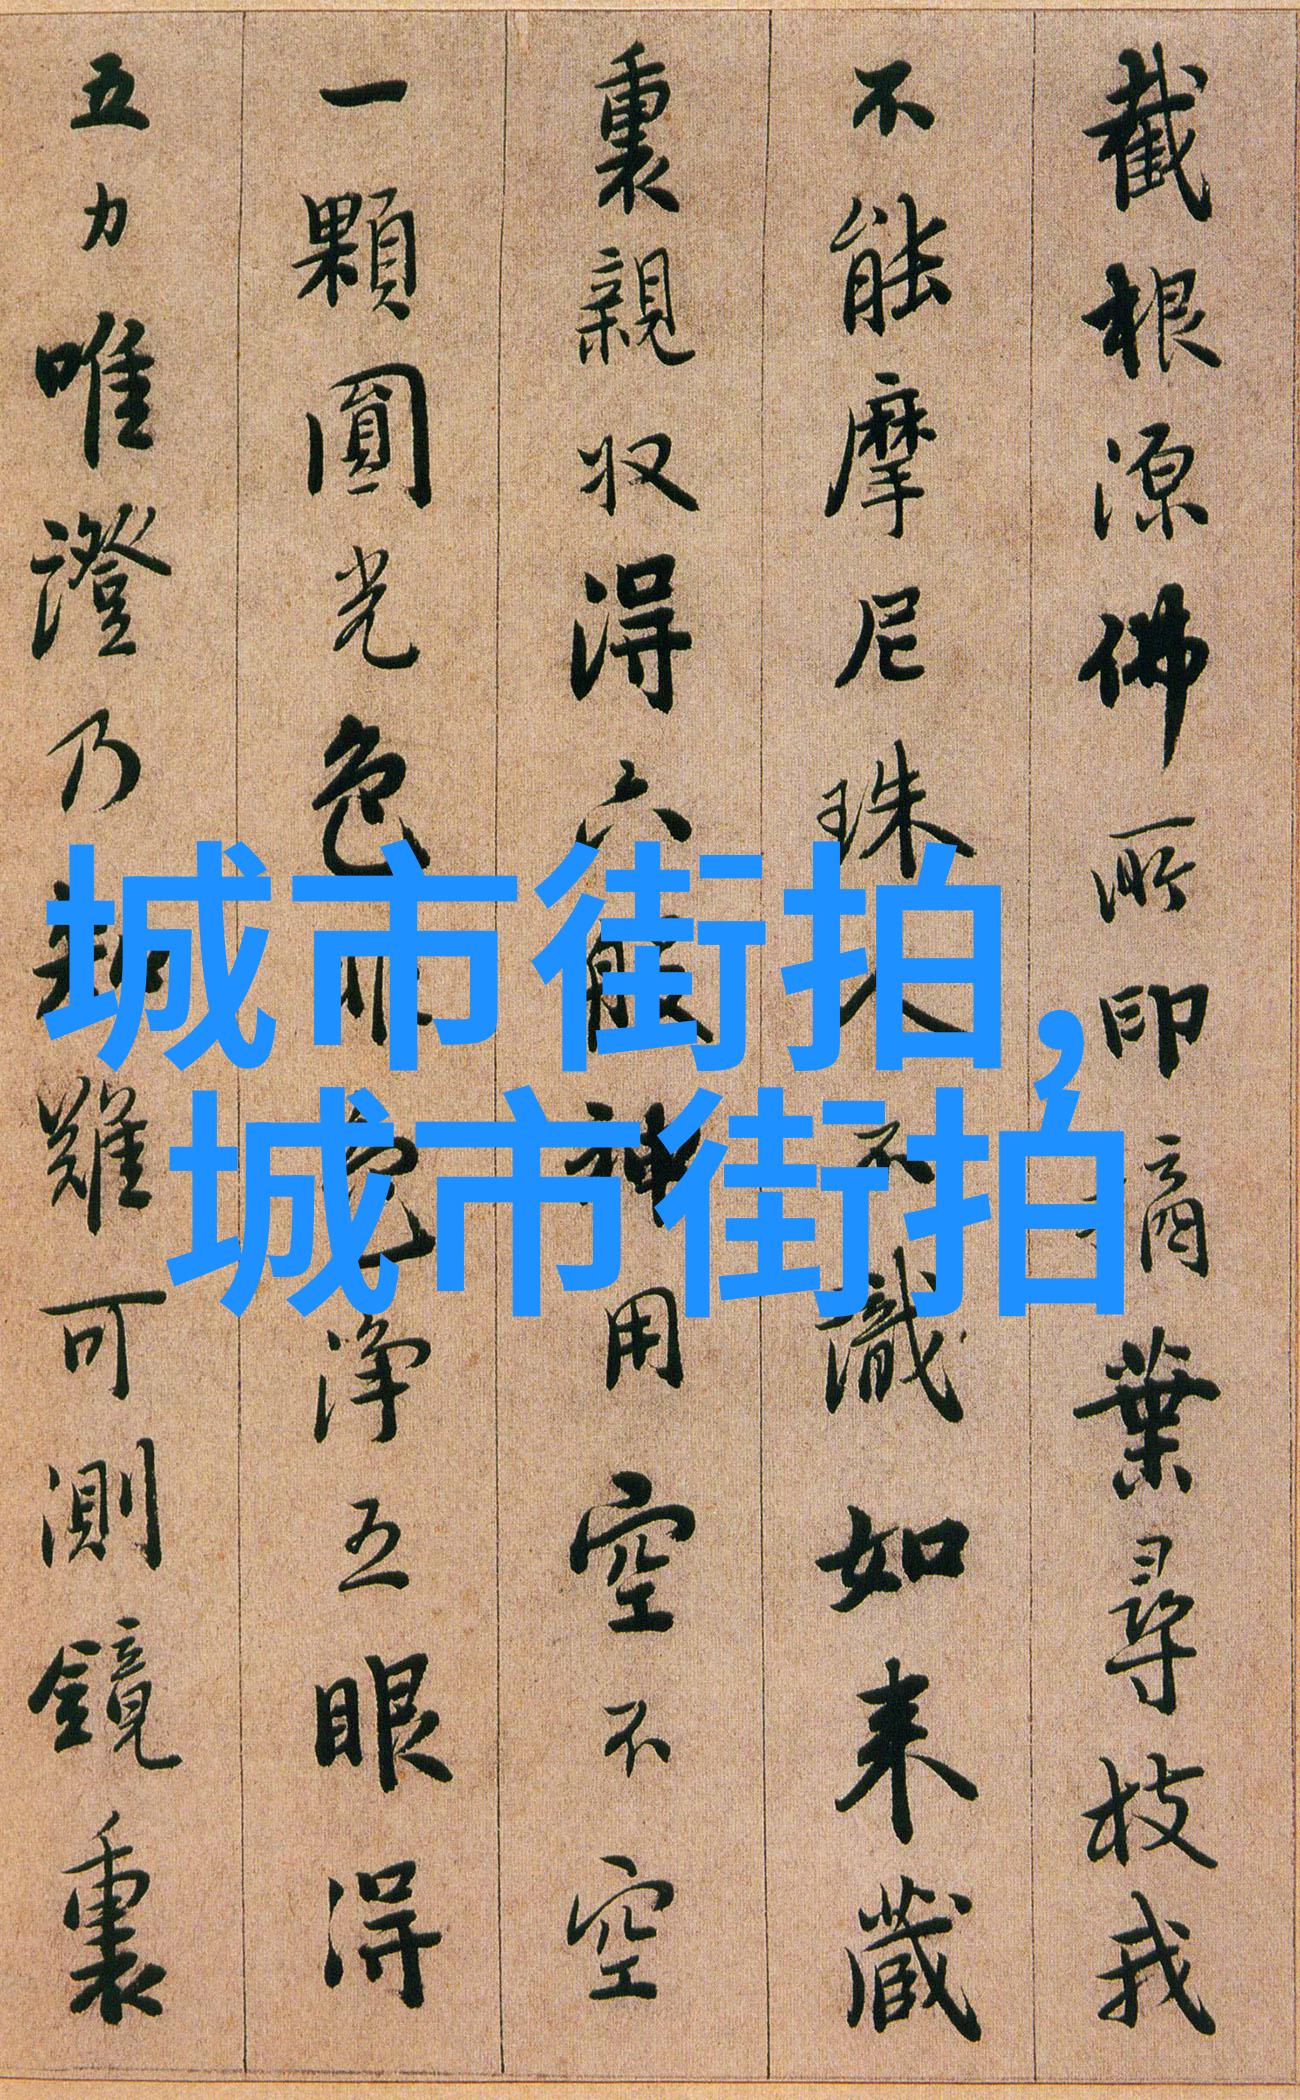 截根源佛所印摘葉尋枝我
不能摩尼珠人不識如来藏
裏親収得六般神用空不空
一顆圓光色非色淨五眼得
五力唯證乃知難可測鏡裏
城市街拍,
城市街拍